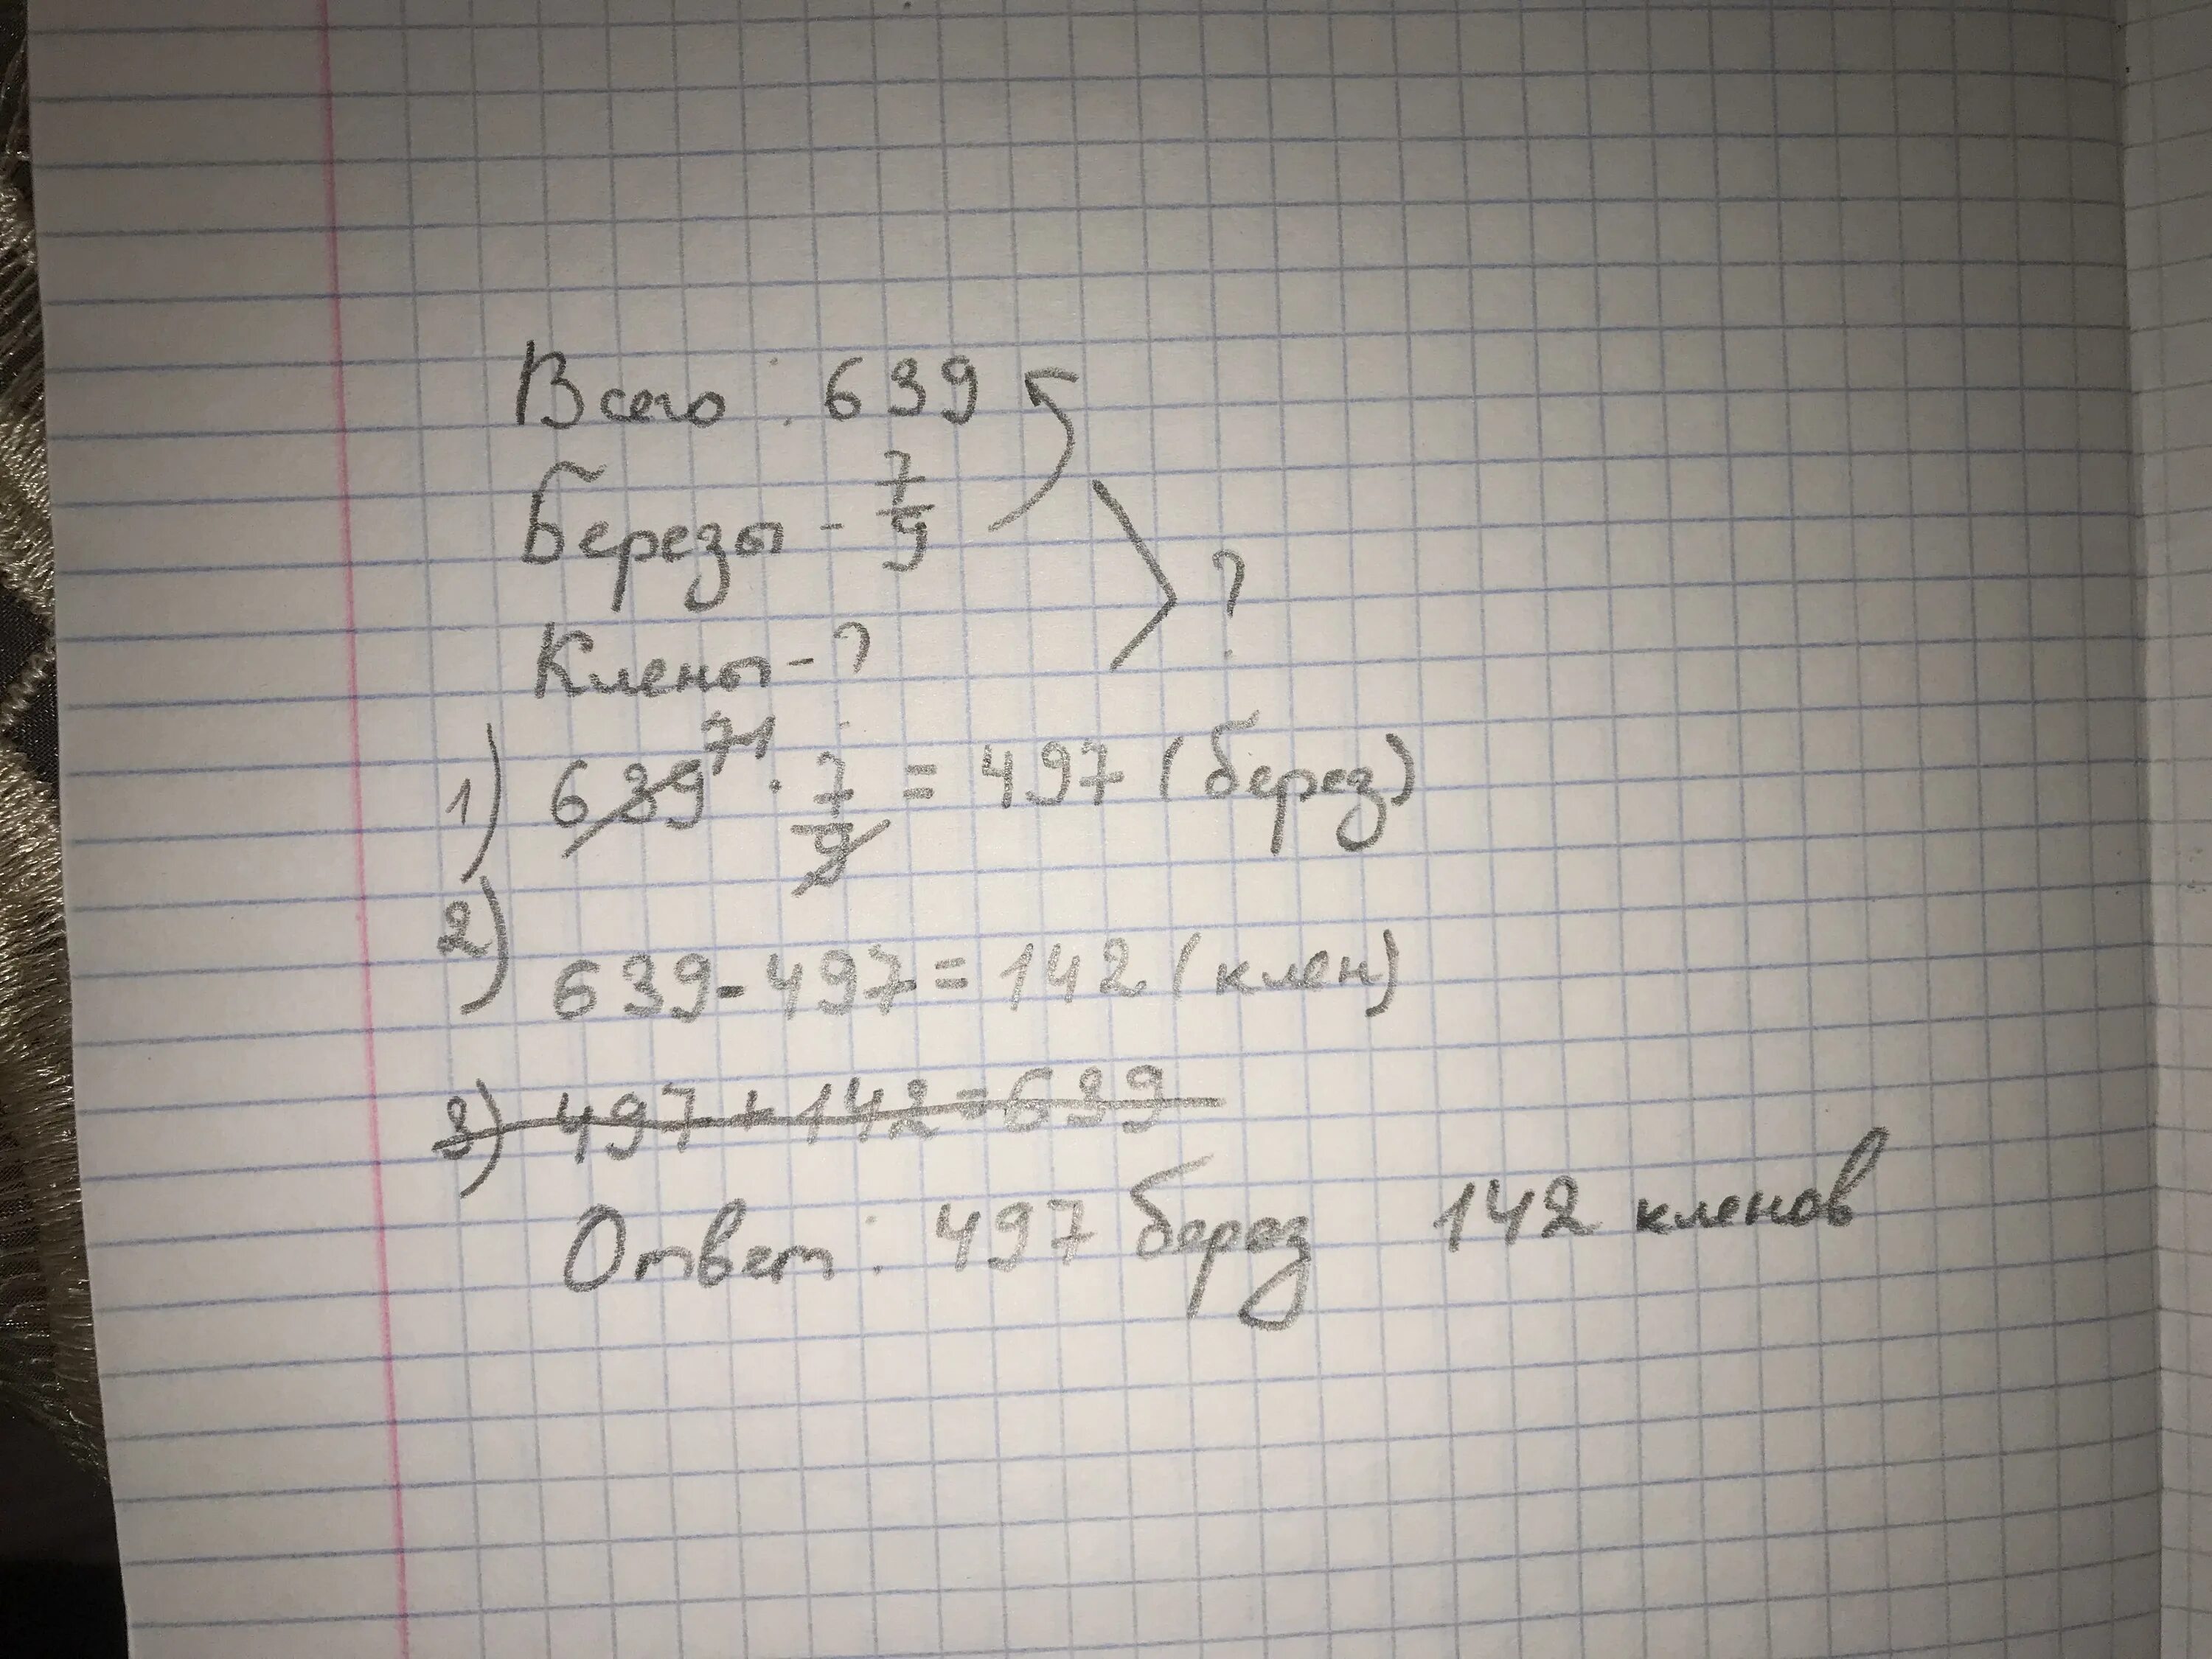 Всего : 639
Березы - 7/9
Клены - ?
?
1) 639 71 · 7/9 = 497 (берез)
2) 639 - 497 = 142 (клен)
3) 497 + 142 = 639
Ответ : 497 берез 142 кленов